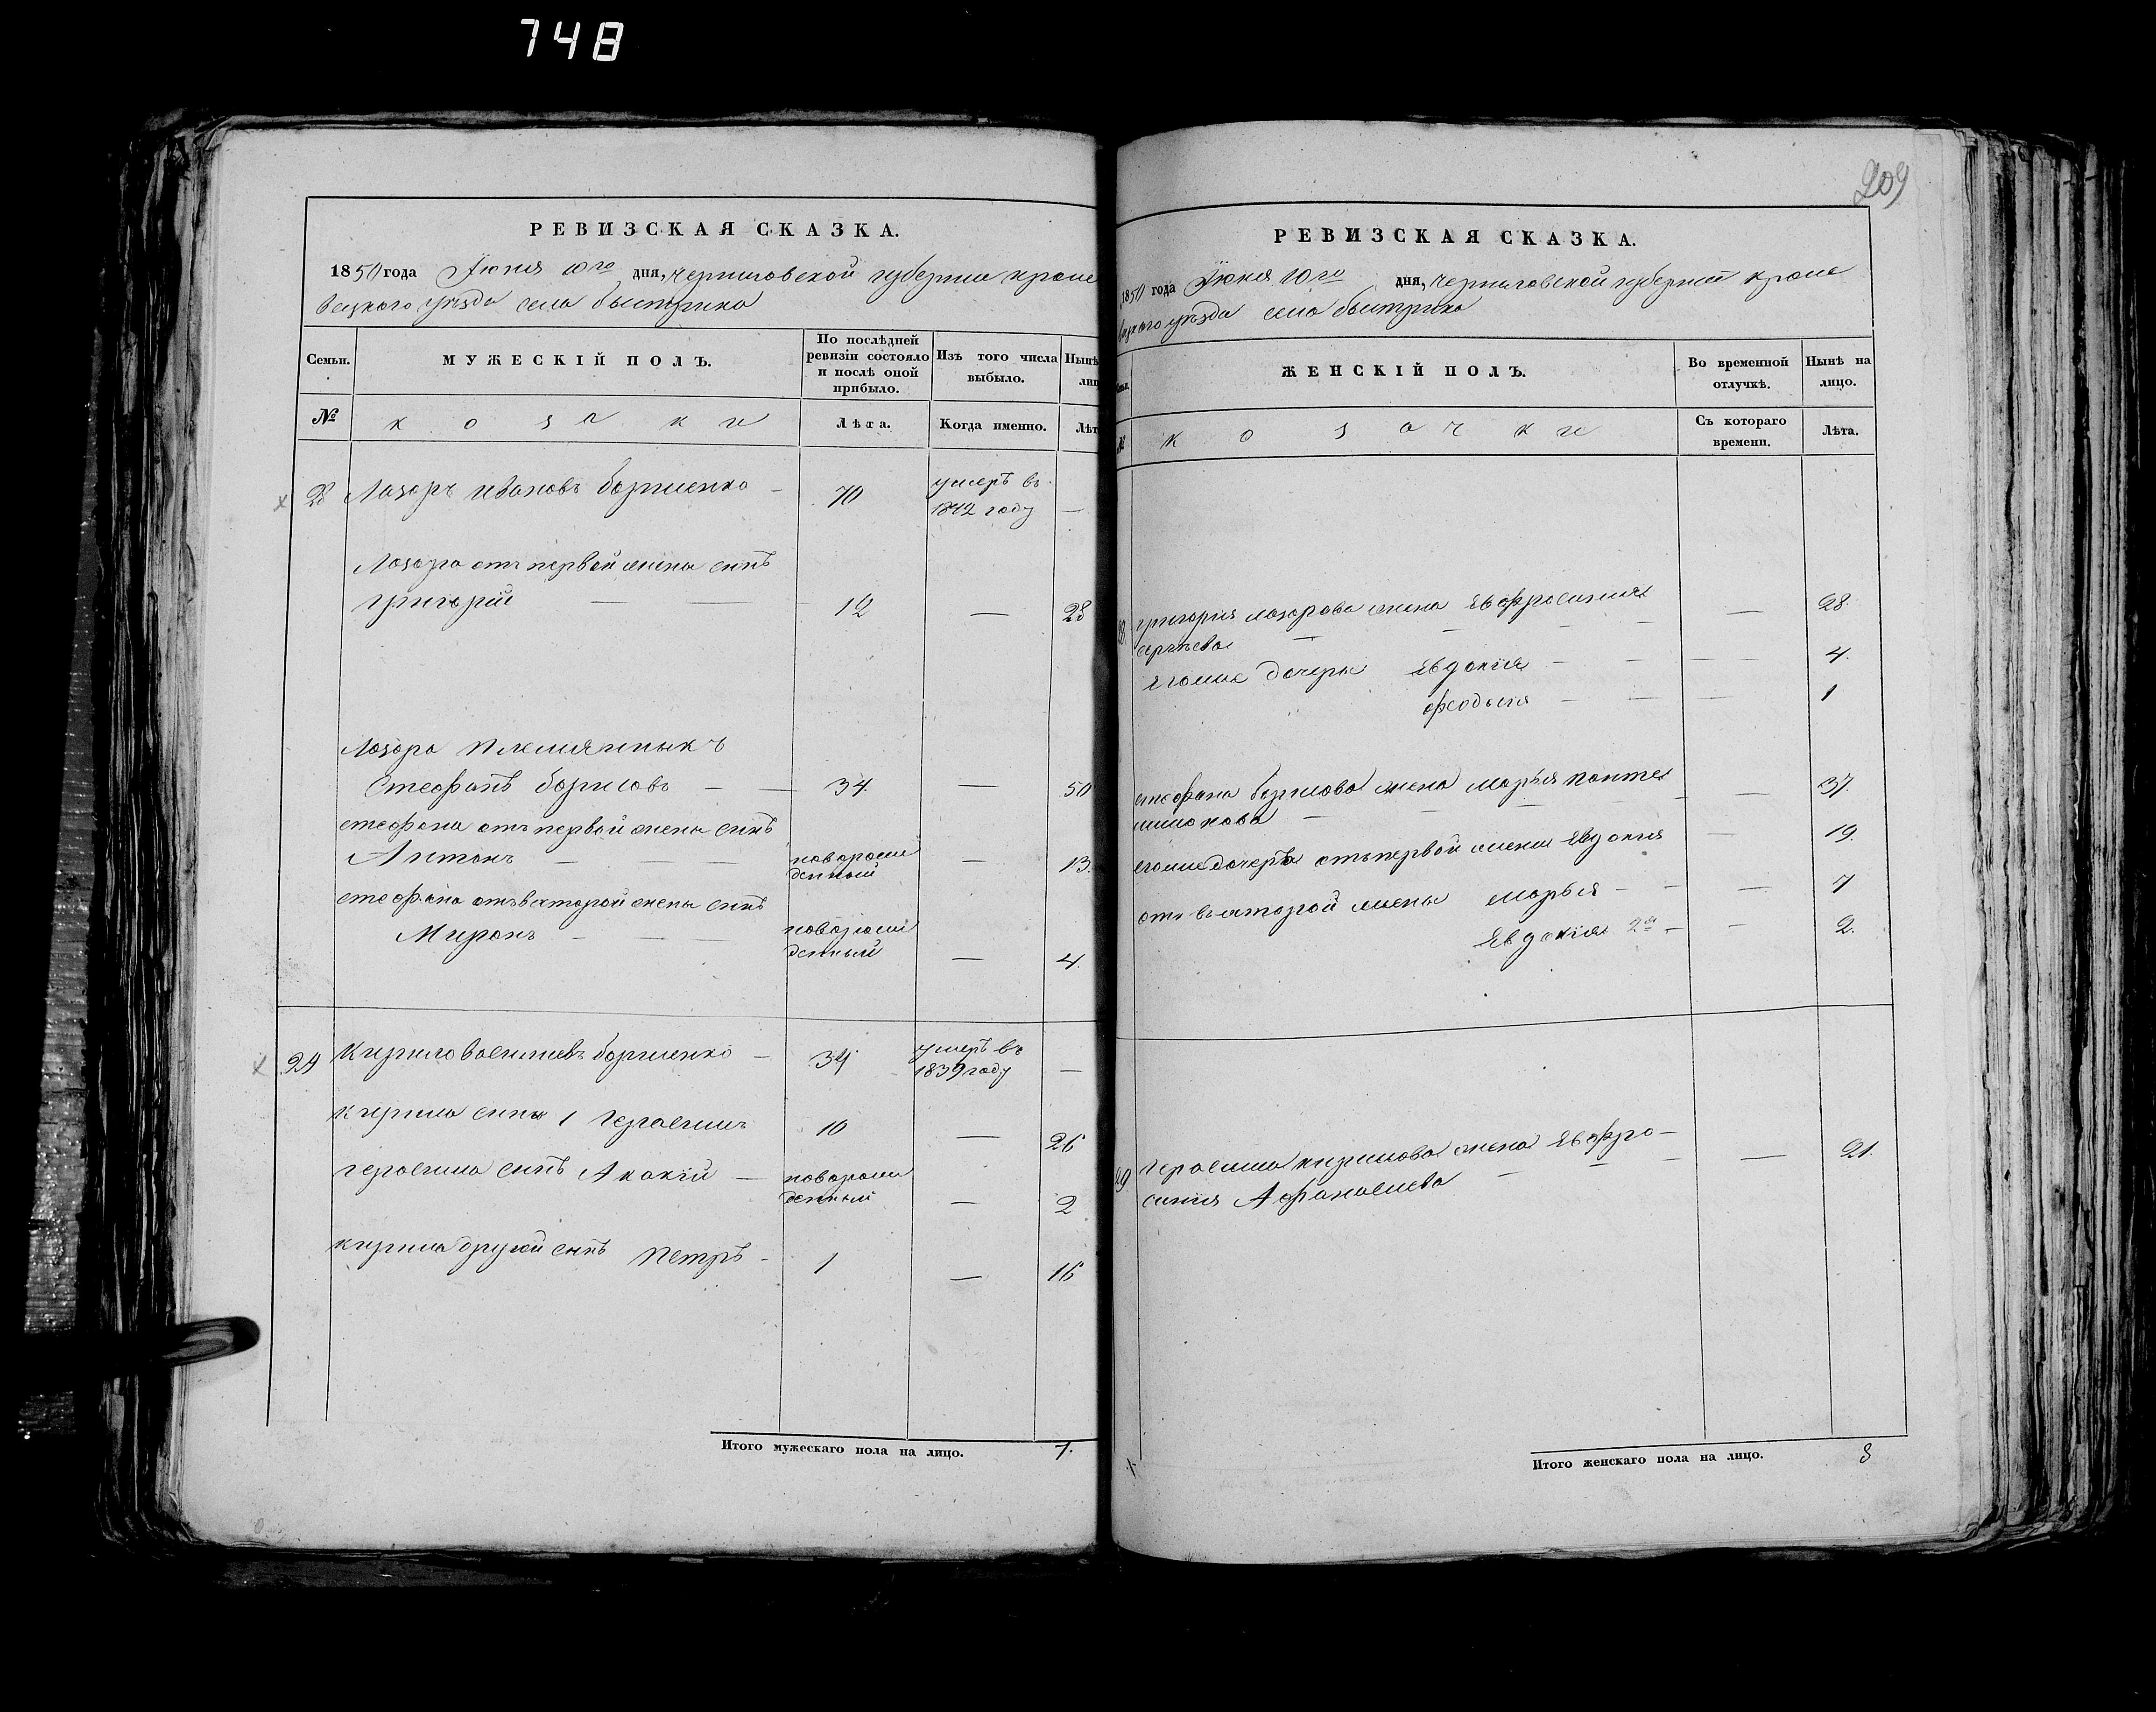 748
209
РЕВИЗСКАЯ СКАЗКА.
1850 года Июня 10го дня, черниговской губернии кроле
вецкого уезда села быстрика
Семьи. МУЖЕСКІЙ ПОЛЪ. По послѣдней ревизіи состояло и послѣ оной прибыло. Изъ того числа выбыло. Нынѣ
№ козаки Лѣта. Когда именно. Лѣт
28 Лазоръ ивановъ борисенко 70 умеръ въ
1842 году —
Лазора отъ первой жены синъ
григорій — — 12 — 28
Лазора племянныкъ
Стефанъ борисовъ — — 34 — 50
стефана отъ первой жены синъ
Антонъ — — — новорож
денный — 13.
стефана отъ второй жены синъ
Миронъ — — — новорож
денный — 4.
29 кирило васильевъ борисенко — 34 умеръ въ
1839 году —
кирила сины 1 герасимъ 10 — 26
герасима синъ Акакій — новорож
денный — 2
кирила другой синъ петръ — 1 — 16
Итого мужескаго пола на лицо. 7.
РЕВИЗСКАЯ СКАЗКА.
1850 года Июня 10го дня, черниговской губерніи кроле
вецкого уезда села быстрика
ЖЕНСКІЙ ПОЛЪ. Во временной отлучкѣ. Нынѣ на лицо.
№ козачки Съ котораго времени. Лѣта.
28. григория лазорова жена Евфросиния — 28.
сергѣева — — — —
егоже дочери Евдокия — — — — 4.
феодосия — — — 1
стефана борисова жена марья панте — 37.
егоже дочерь отъ первой жены Евдокия — 19.
отъ вторoй жены марья — — — 7
Евдокия 2я — — 2.
29 герасима кирилова жена Евфро — — 21.
синия Афанасиева — — —
Итого женскаго пола на лицо. 8